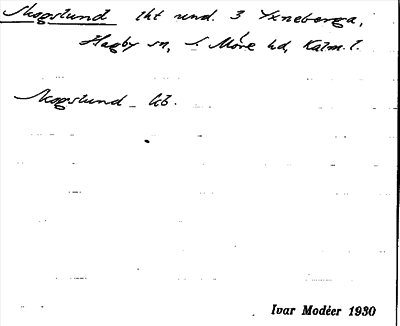 Skogslund lht und. 3 Yxneberga,
Hagby sn, S. Möre hd, Kalm. l.
Skogslund_ kb.
Ivar Modéer 1930